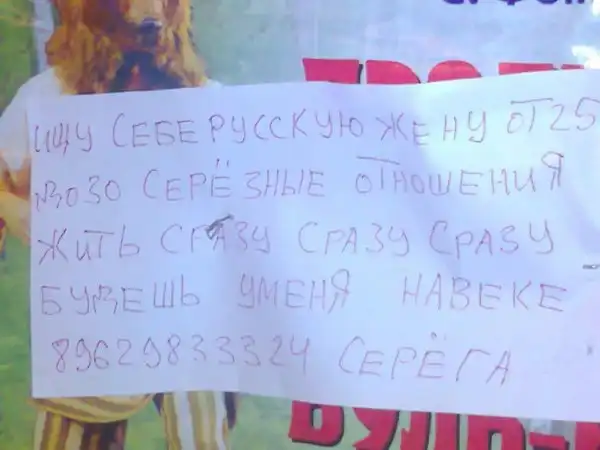 ИЩУ СЕБЕ РУССКУЮ ЖЕНУ ОТ 25
ДО 30 СЕРЁЗНЫЕ ОТНОШЕНИЯ
ЖИТЬ СРАЗУ СРАЗУ СРАЗУ
БУДЕШЬ УМЕНЯ НАВЕКЕ
89629833324 СЕРЁГА